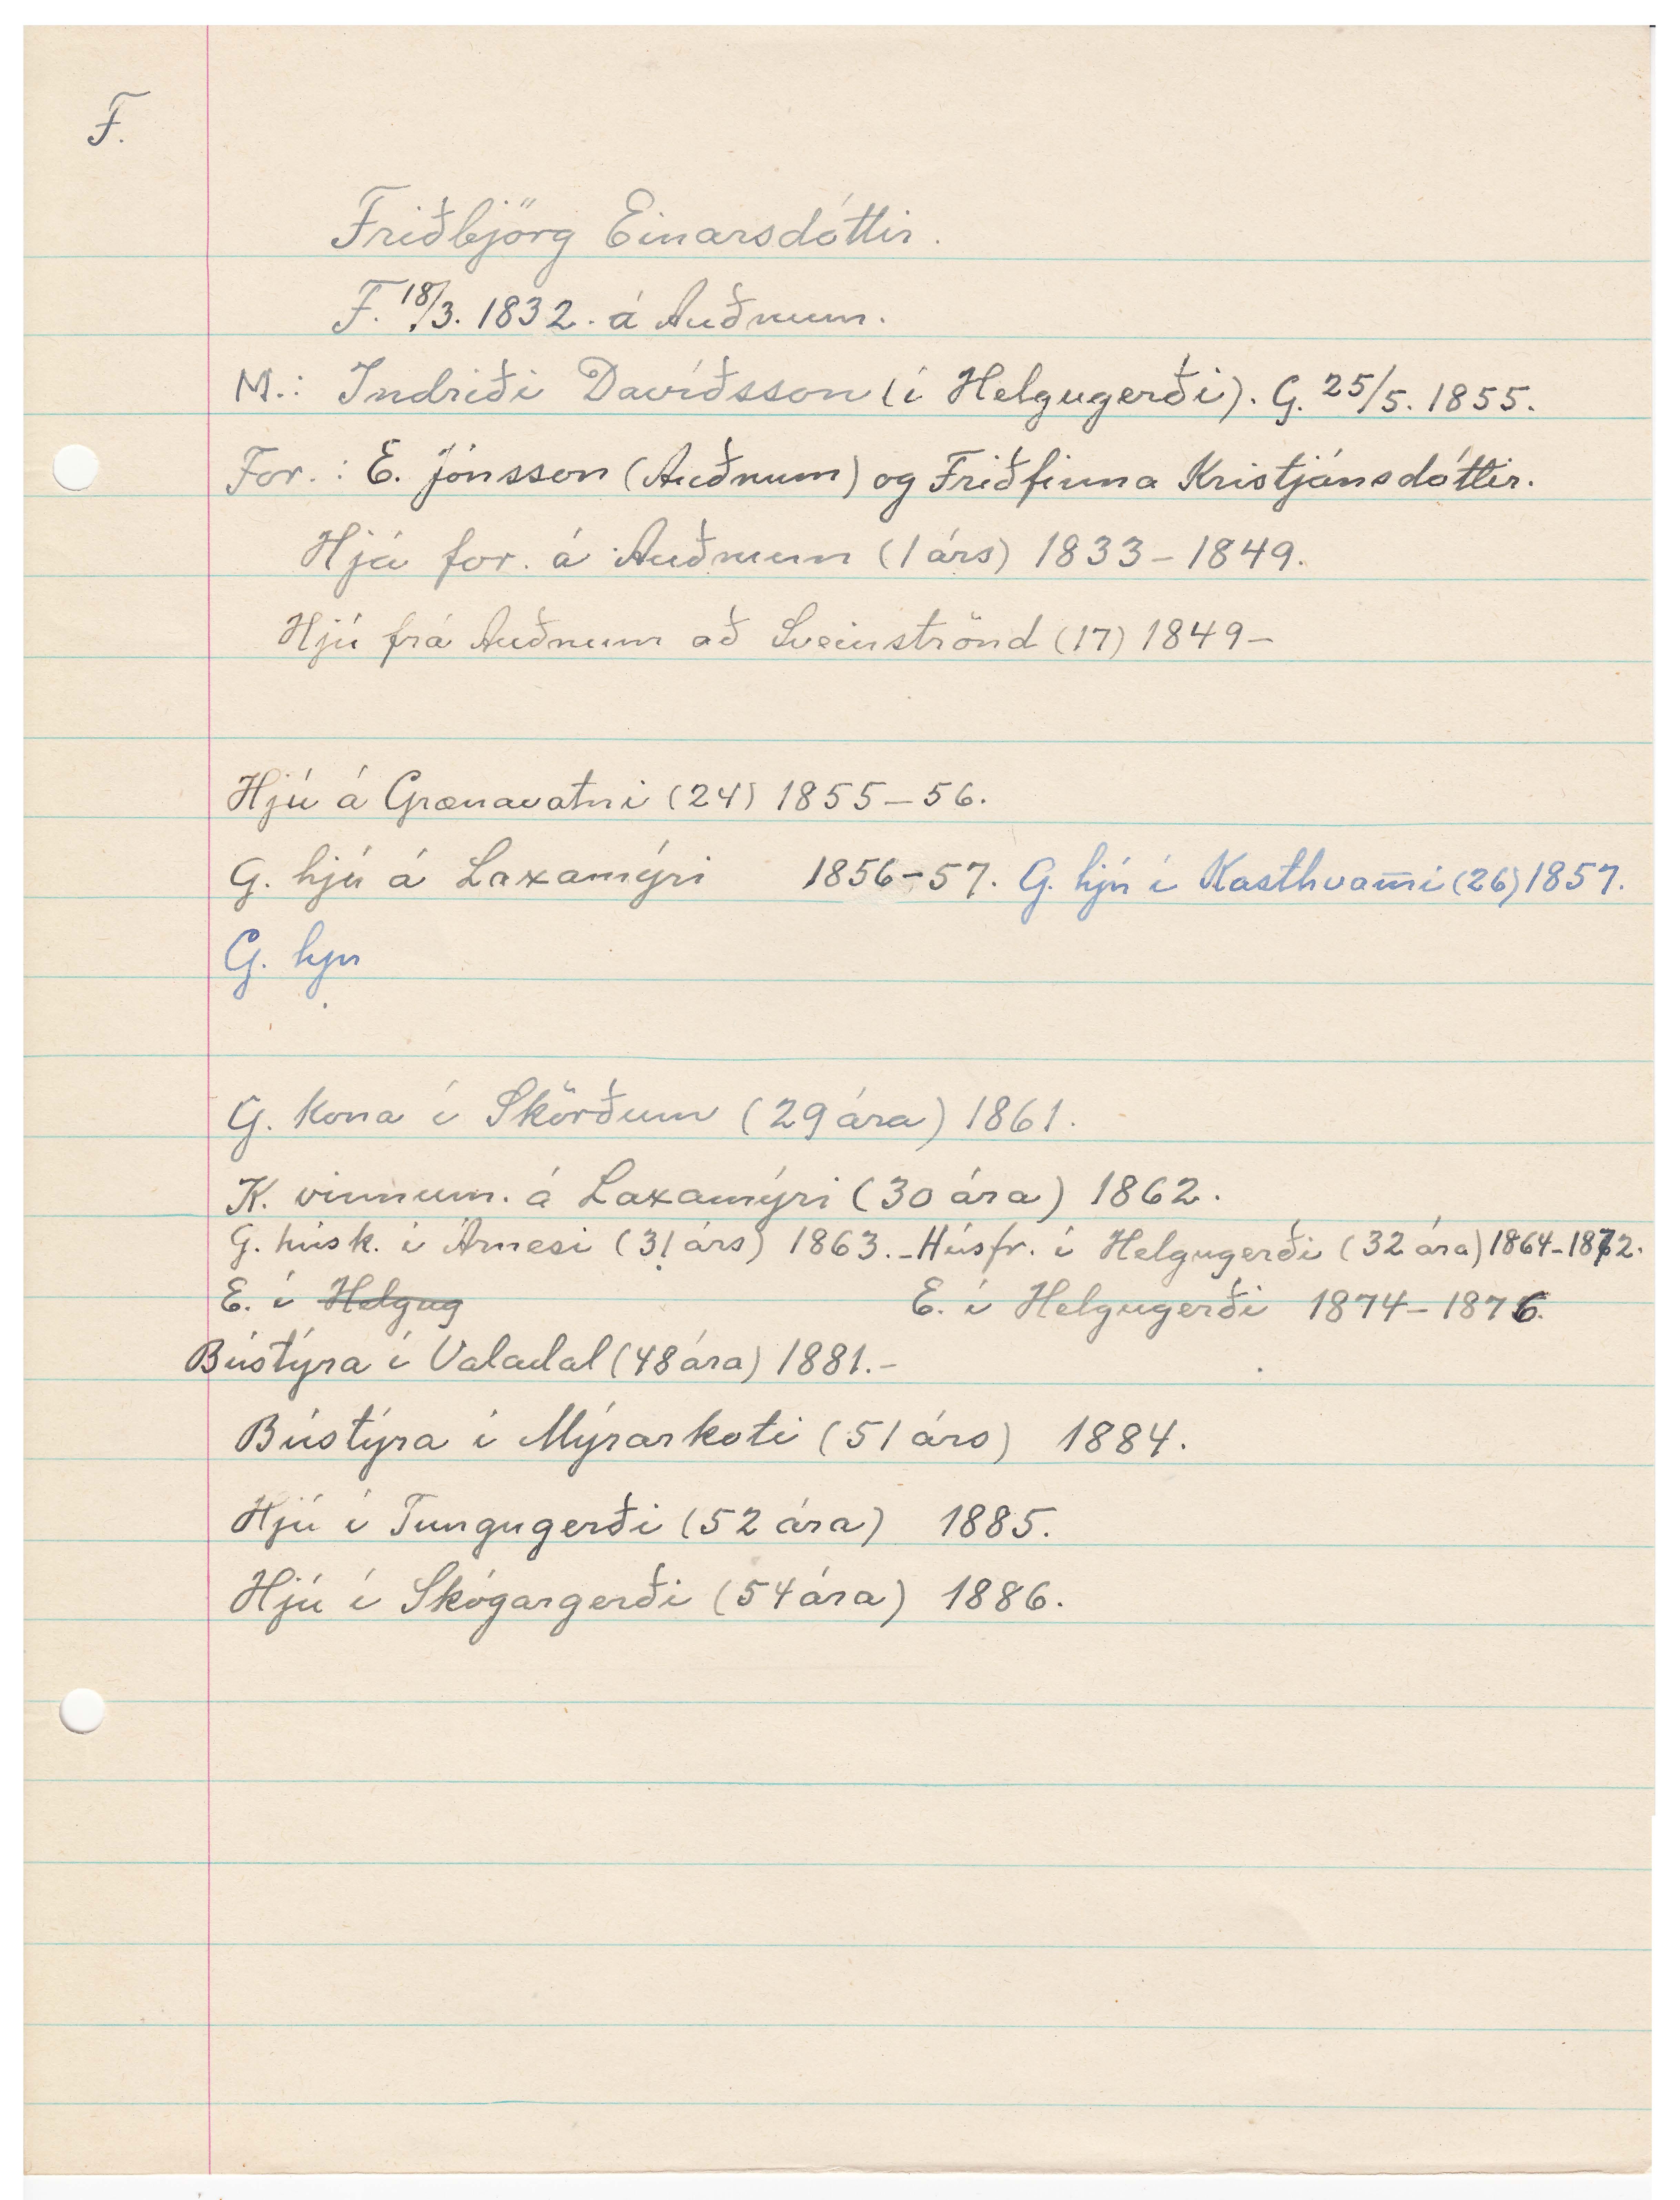 F.
Friðbjörg Einarsdóttir.
F. 18/3. 1832. á Auðnum.
M.: Indriði Davíðsson (í Helgugerði). G. 25/5. 1855.
For.: E. Jónsson (Auðnum) og Friðfinna Kristjánsdóttir.
Hjá for. á Auðnum (1 árs) 1833-1849.
Hjú frá Auðnum að Sveinströnd (17) 1849-
Hjú á Grænavatni (24) 1855-56.
G. hjú á Laxamýri 1856-57. G. hjú í Kasthvam̄i (26) 1857.
G. hju
G. kona í Skörðum (29 ára) 1861.
K. vinnum. á Laxamýri (30 ára) 1862.
G. húsk. í Árnesi (31 árs) 1863.-Húsfr. í Helgugerði (32 ára) 1864-1872.
E. í Helgug E. í Helgugerði 1874-1876.
Bústýra í Valadal (48 ára) 1881.-
Bústýra í Mýrarkoti (51 árs) 1884.
Hjú í Tungugerði (52 ára) 1885.
Hjú í Skógargerði (54 ára) 1886.